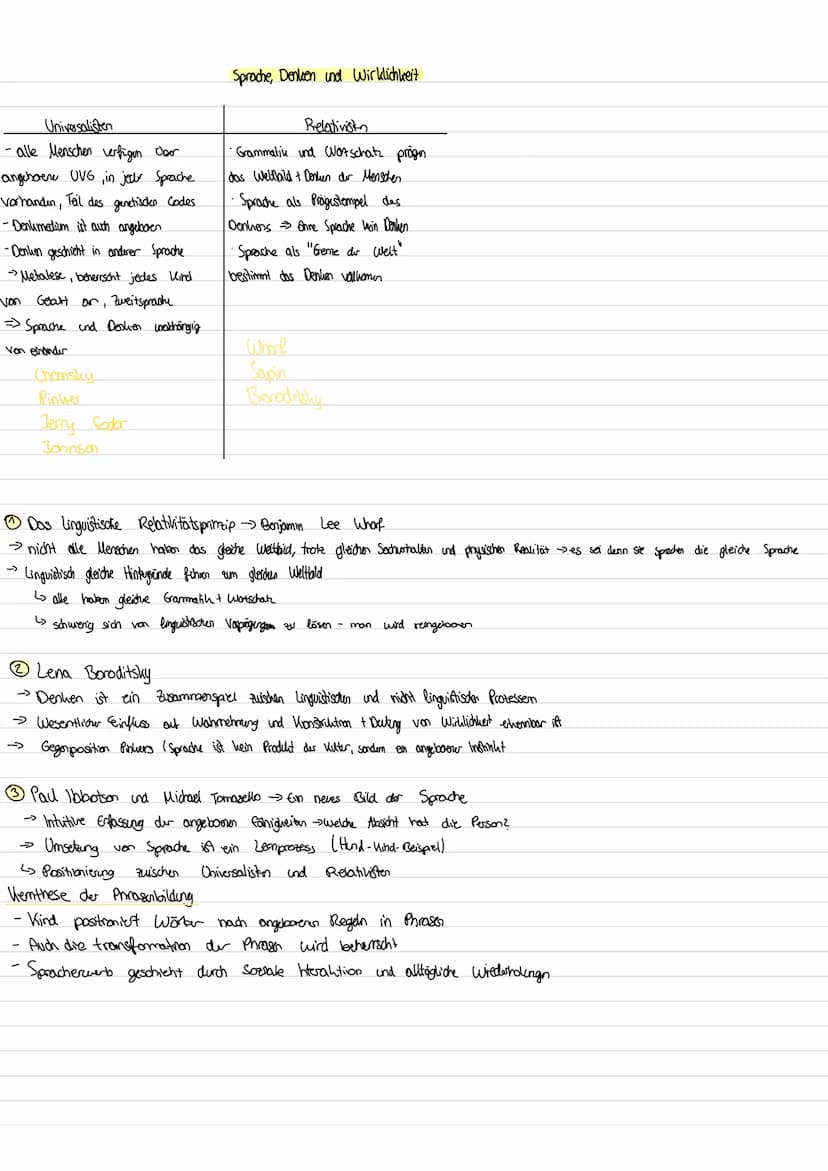 Sprache, Denken und Wirklichkeit
Universalisten
- alle Menschen verfügen über
angeborene UVG, in jeder Sprache
vorhanden, Teil des genetischen Codes
- Denkmedium ist auch angeboren
- Denken geschieht in anderer Sprache
→ Metalese, beherrscht jedes Kind
von Geburt an, Zweitsprache
⇒ Sprache und Denken unabhängig
von einander
Chomsky
Pinker
Jerry Fodor
Johnson
Relativisten
· Grammatik und Wortschatz prägen
das Weltbild + Denken der Menschen
· Sprache als Prägestempel des
Denkens ⇒ Ohne Sprache kein Denken
· Sprache als "Grenze der Welt"
bestimmt das Denken vollkommen
Whorf
Sapin
Boroditsky
① Das linguistische Relativitätsprinzip → Benjamin Lee Whorf
→ nicht alle Menschen haben das gleiche Weltbild, trotz gleichen Sachverhalten und physischen Realität → es sei denn sie sprechen die gleiche Sprache
→ Linguistisch gleiche Hintergründe führen zum gleichen Weltbild
↳ alle haben gleiche Grammatik + Wortschatz
↳ schwierig sich von linguistischen Vorprägungen zu lösen - man wird reingeboren
② Lena Boroditsky
→ Denken ist ein Zusammenspiel zwischen linguistischen und nicht linguistischen Prozessen
→ Wesentlicher Einfluss auf Wahrnehmung und Konstruktion + Deutung von Wirklichkeit erkennbar ist
→ Gegenposition Pinkers (Sprache ist kein Produkt der Kultur, sondern ein angeborener Instinkt
③ Paul Ibbotson und Michael Tomasello → Ein neues Bild der Sprache
→ Intuitive Erfassung der angeborenen Fähigkeiten → welche Absicht hat die Person?
→ Umsetzung von Sprache ist ein Lernprozess (Hund-Kind-Beispiel)
↳ Positionierung zwischen Universalisten und Relativisten
Kernthese der Phrasenbildung
- Kind positioniert Wörter nach angeborenen Regeln in Phrasen
- Auch die transformation der Phrasen wird beherrscht
- Spracherwerb geschieht durch Soziale Interaktion und alltägliche Wiederholungen